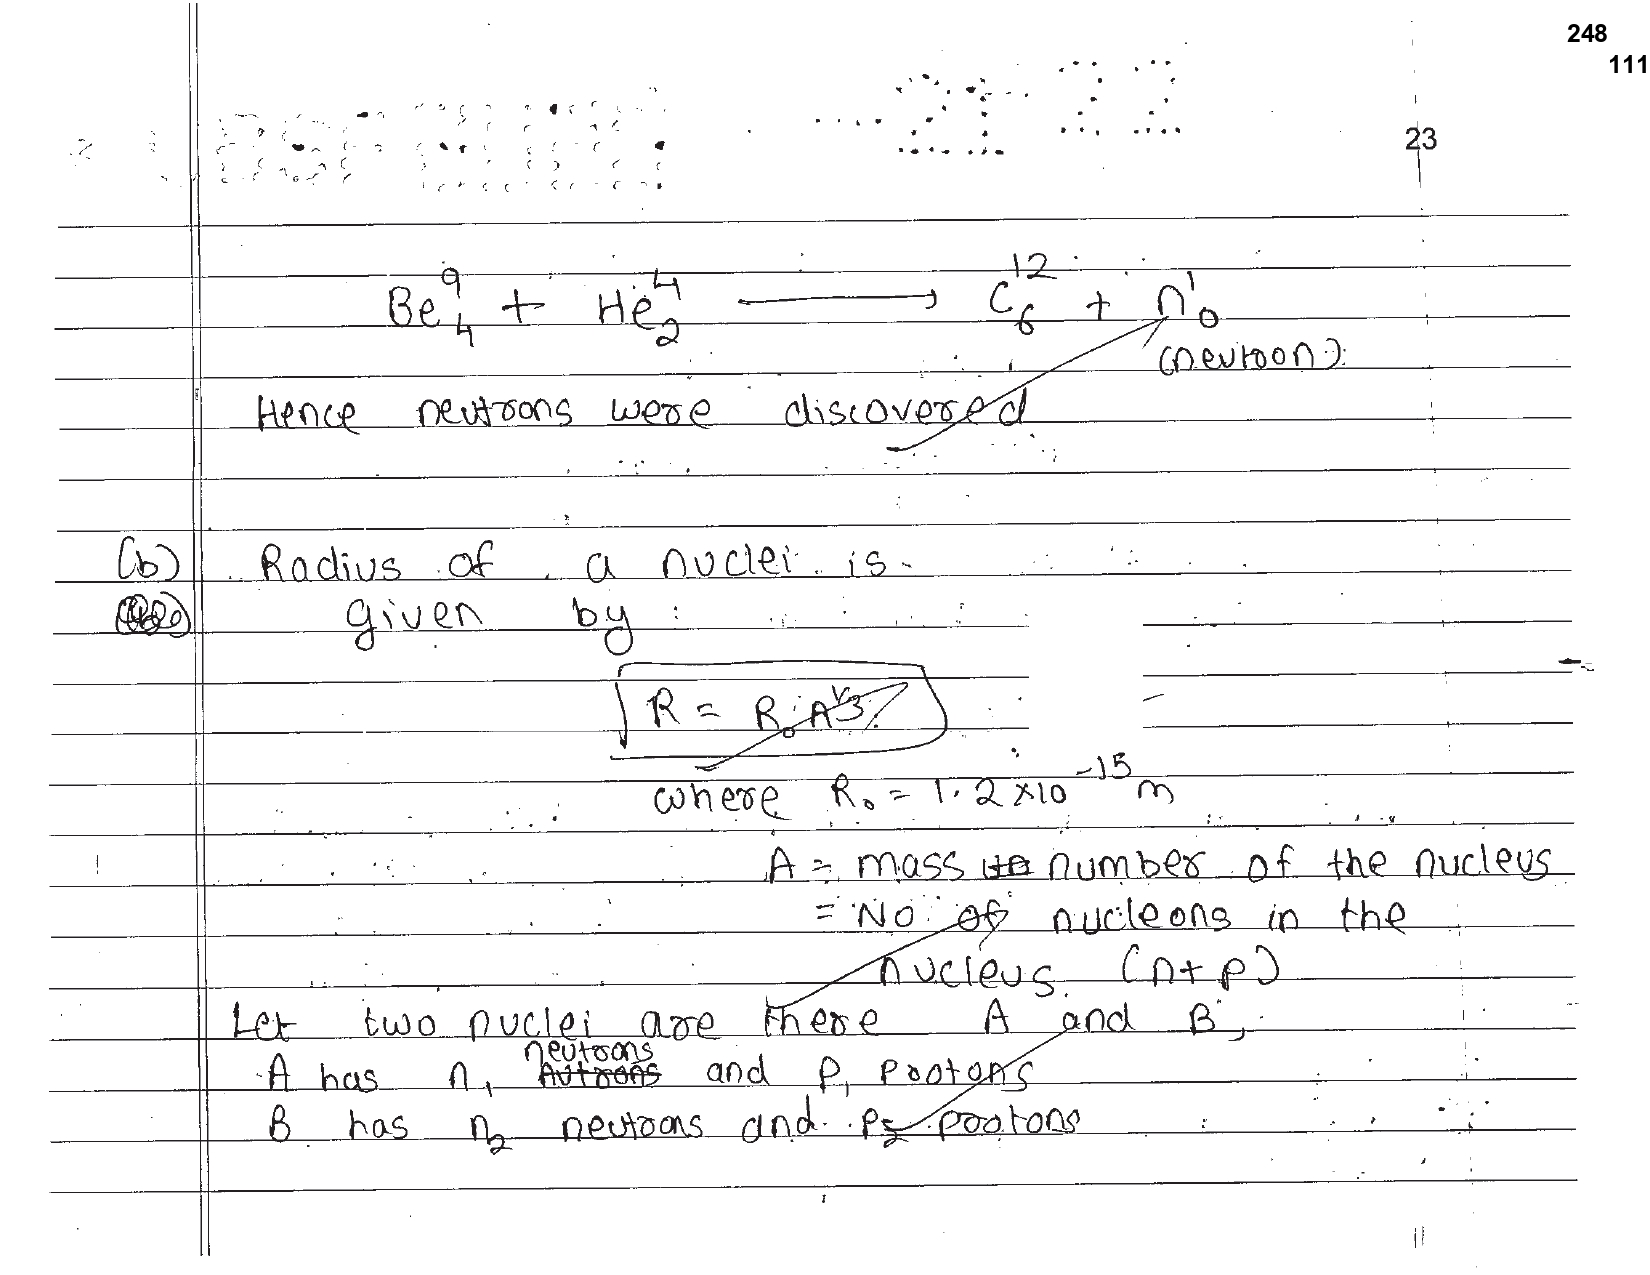 248
111
23
Be⁹₄ + He⁴₂ ⟶ C¹²₆ + n¹₀
(neutron).
Hence neutrons were discovered
(b) Radius of a nuclei is
given by :
R = R₀A^1/3
where R₀ = 1.2×10⁻¹⁵ m
A = mass number of the nucleus
= No of nucleons in the
nucleus. (n+p)
Let two nuclei are there A and B,
neutrons
A has n₁ nutrons and p₁ protons
B has n₂ neutrons and p₂ protons